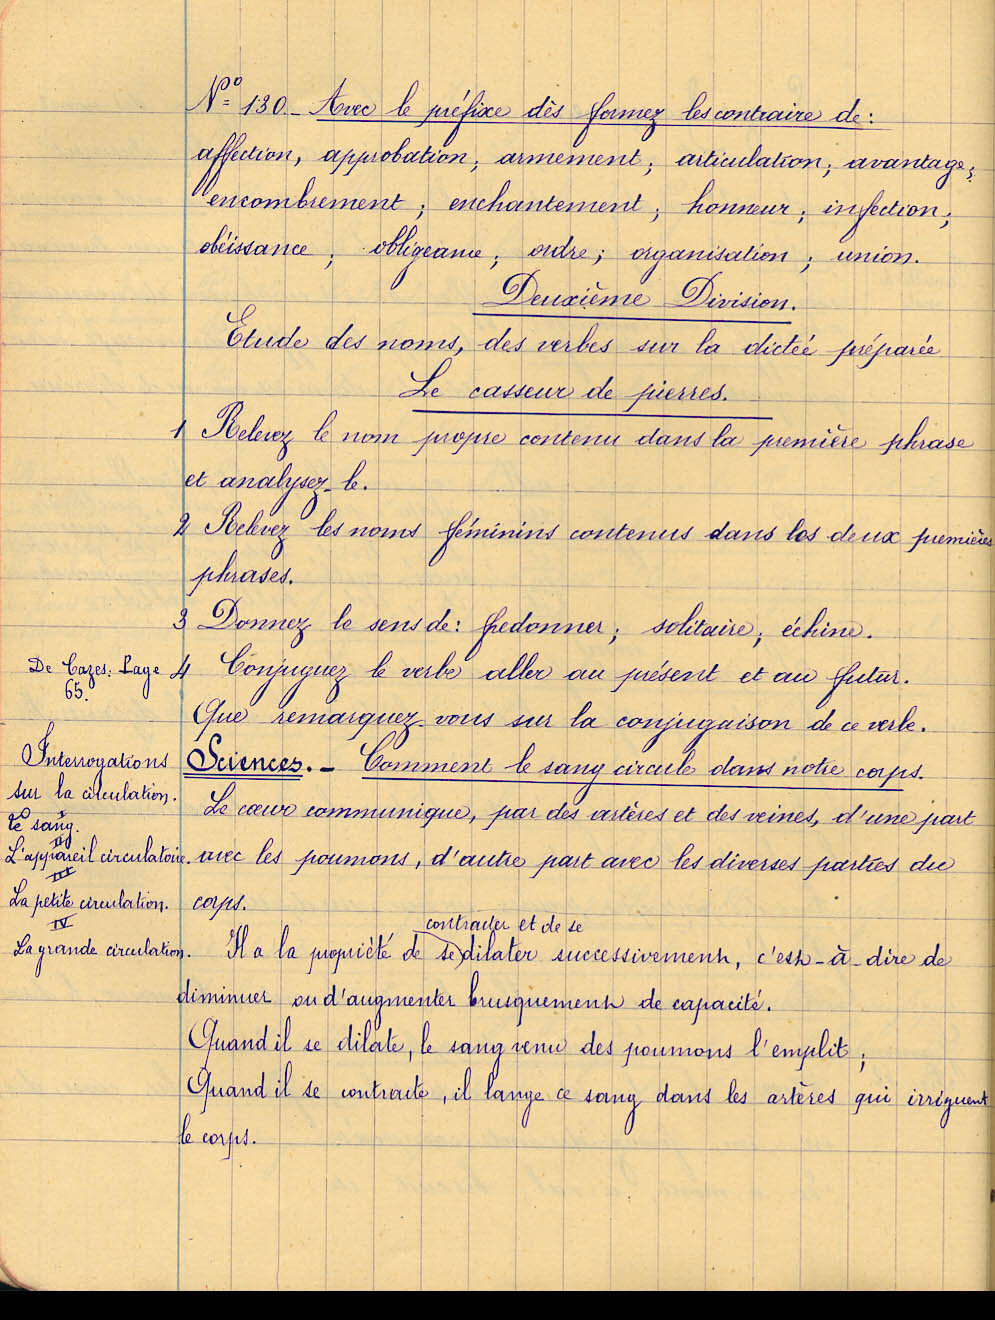 N° 130._ Avec le préfixe dès formez les contraire de:
affection, approbation; armement; articulation; avantage;
encombrement; enchantement; honneur; infection;
obéissance; obligeance; ordre; organisation; union.
Deuxième Division.
Etude des noms, des verbes sur la dictéé préparée
Le casseur de pierres.
1 Relevez le nom propre contenu dans la première phrase
et analysez-le.
2 Relevez les noms féminins contenus dans les deux premières
phrases.
3 Donnez le sens de: fredonner; solitaire; échine.
De Cazes: Page
65.
4 Conjuguez le verbe aller au présent et au futur.
Que remarquez-vous sur la conjugaison de ce verbe.
Interrogations
sur la circulation.
I
Le sang.
II
L'appareil circulatoire.
III
La petite circulation.
IV
La grande circulation.
Sciences._ Comment le sang circule dans notre corps.
Le cœur communique, par des artères et des veines, d'une part
avec les poumons, d'autre part avec les diverses parties du
corps.
contracter et de se
Il a la propriété de se dilater successivement, c'est-à-dire de
diminuer ou d'augmenter brusquement de capacité.
Quand il se dilate, le sang venu des poumons l'emplit;
Quand il se contracte, il lange ce sang dans les artères qui irriguent
le corps.